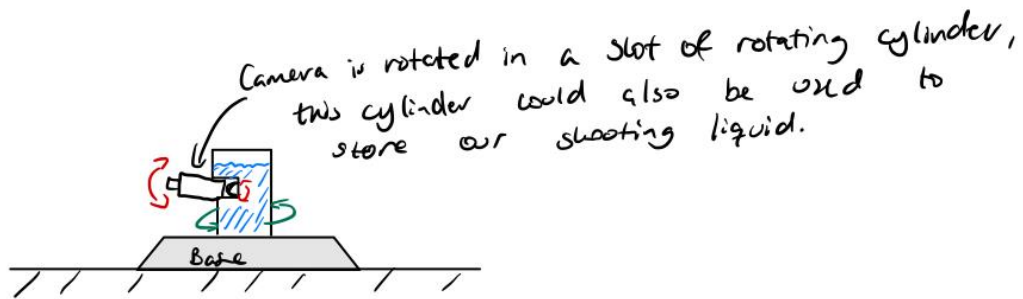 Camera is rotated in a slot of rotating cylinder,
this cylinder could also be used to
store our shooting liquid.
Base